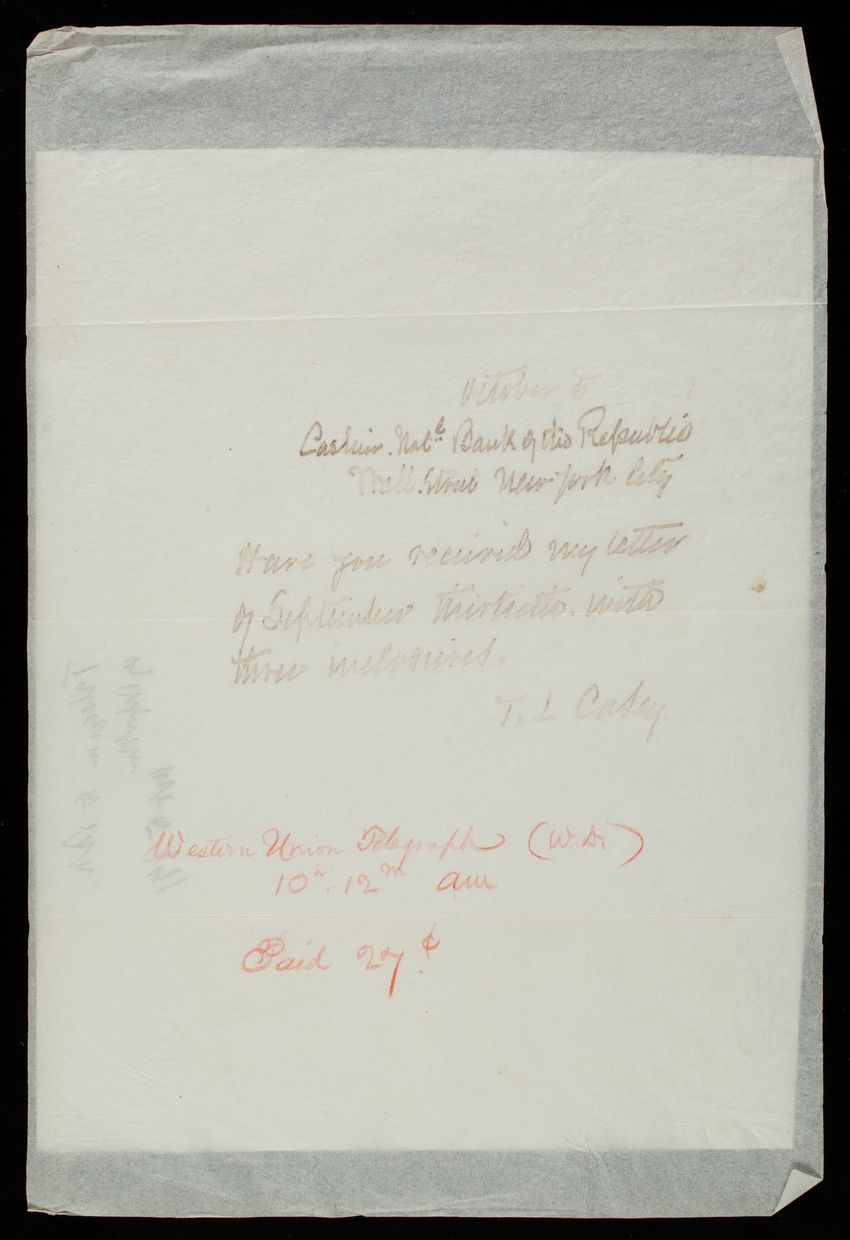 October 5
Cashier. Natl Bank of the Republic
Wall. Street New York City
Have you received my letter
of September thirtieth. with
three inclosures.
T. L. Casey
Western Union Telegraph (W.D.)
10h. 12m am
Paid 27¢